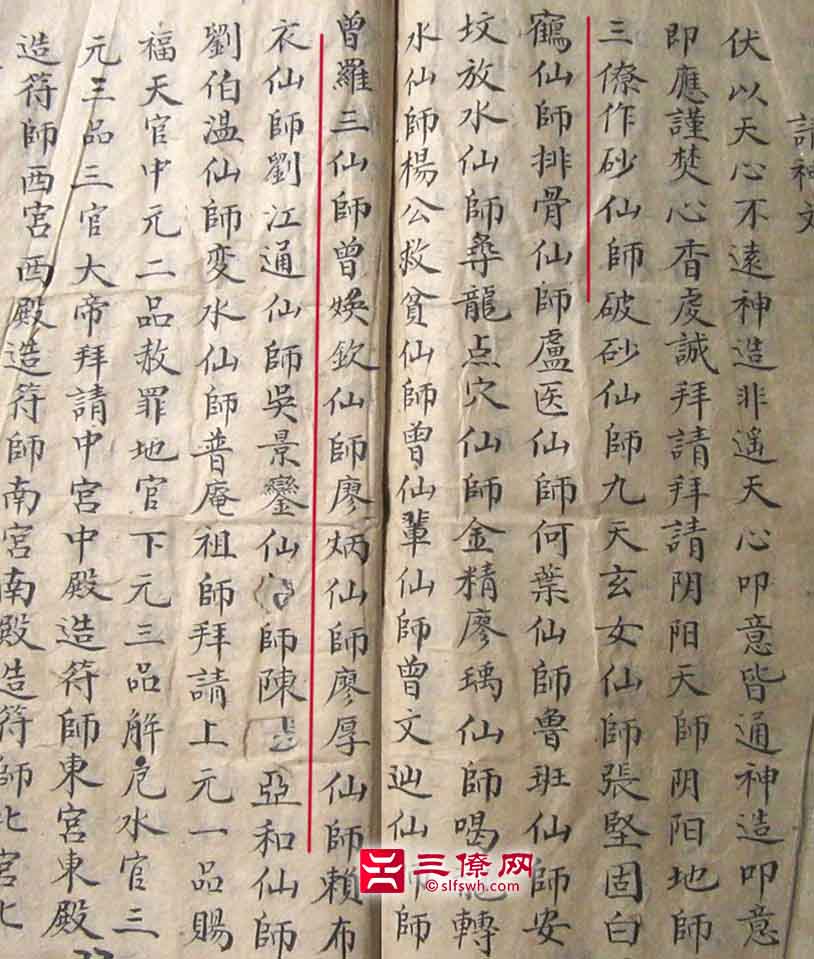 請神文
伏以天心不遠神造非遥天心叩意皆通神造叩意
即應謹焚心香虔誠拜請拜請阴阳天師阴阳地師
三僚作砂仙師破砂仙師九天玄女仙師張堅固白
鶴仙師排骨仙師盧医仙師何葉仙師魯班仙師安
坟放水仙師尋龍点穴仙師金精廖瑀仙師喝轉
水仙師楊公救貧仙師曾仙輩仙師曾文辿仙師
曾羅三仙師曾媖欽仙師廖炳仙師廖厚仙師賴布
衣仙師劉江通仙師吳景鑾仙師陳亞和仙師
劉伯温仙師变水仙師普庵祖師拜請上元一品賜
福天官中元二品赦罪地官下元三品解厄水官三
元三品三官大帝拜請中宮中殿造符師東宮東殿
造符師西宮西殿造符師南宮南殿造符師北宮北
三僚网
slfswh.com